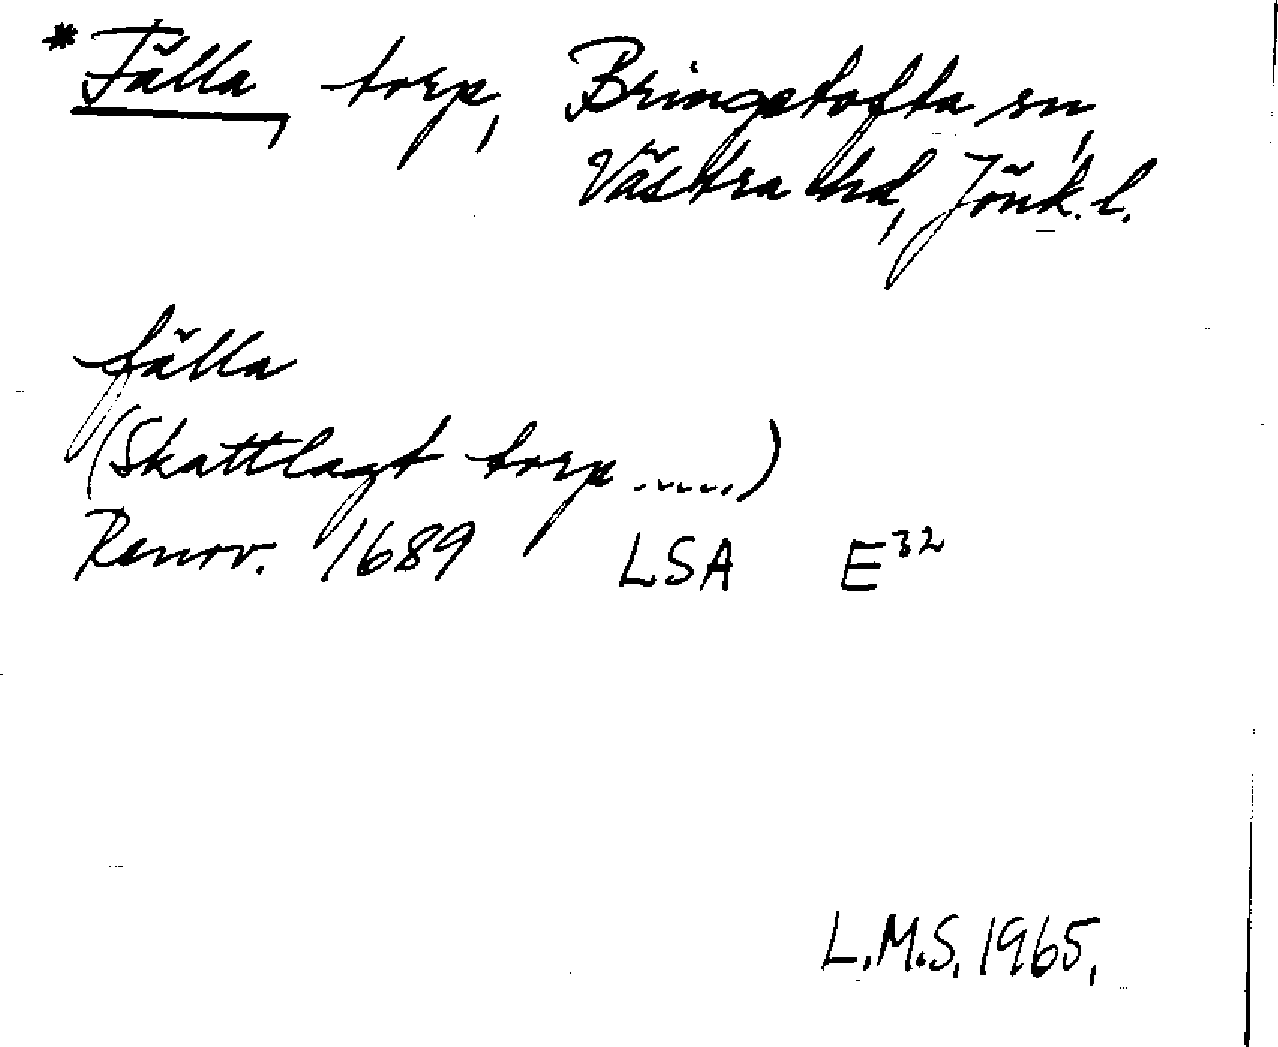 *Fälla, torp, Bringetofta sn,
Västra hd, Jönk. l.
fälla
(Skattlagt torp .....)
Renov. 1689 LSA E32
L.M.S. 1965.